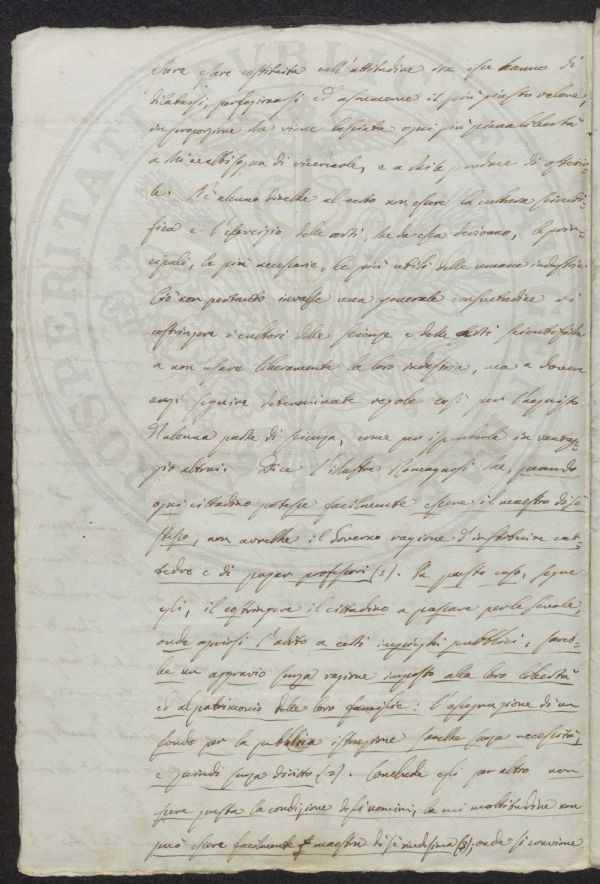 dere essere costituita nell'attitudine che essa hanno di
dilatarsi, perfezionarsi ed assumerne il più giusto valore,
in proporzione che viene lasciata ogni più piena libertà
a chi abbisogna di ricercarle, e a chi le produce di offerir-
le. Nè alcuno direbbe al certo non essere la cultura scienti-
fica e l'esercizio delle arti, che da essa derivano, le prin-
cipali, le più necessarie, le più utili delle umane industrie.
Ciò non pertanto invalse una generale consuetudine di
costringere i cultori delle scienze e delle arti scientifiche
a non usare liberamente la loro industria, ma a dovere
anzi seguire determinate regole così per l'acquisto
d'alcuna parte di scienza, come per ispenderla in vantag-
gio altrui. Dice l'illustre Romagnosi che, quando
ogni cittadino potesse facilmente essere il maestro di sè
stesso, non avrebbe il Governo ragione d'instituire cat-
tedre e di pagar professori (1). In questo caso, segue
egli, il costringere il cittadino a passare per le scuole,
onde aprirsi l'adito a certi impieghi pubblici, sareb-
be un aggravio senza ragione imposto alla loro libertà
ed al patrimonio delle loro famiglie: l'assegnazione di un
fondo per la pubblica istruzione sarebbe senza necessità,
e quindi senza diritto (2). Conclude egli per altro non
essere questa la condizione degli uomini, la cui moltitudine non
può essere facilmente maestra di sè medesima (3); onde si conviene